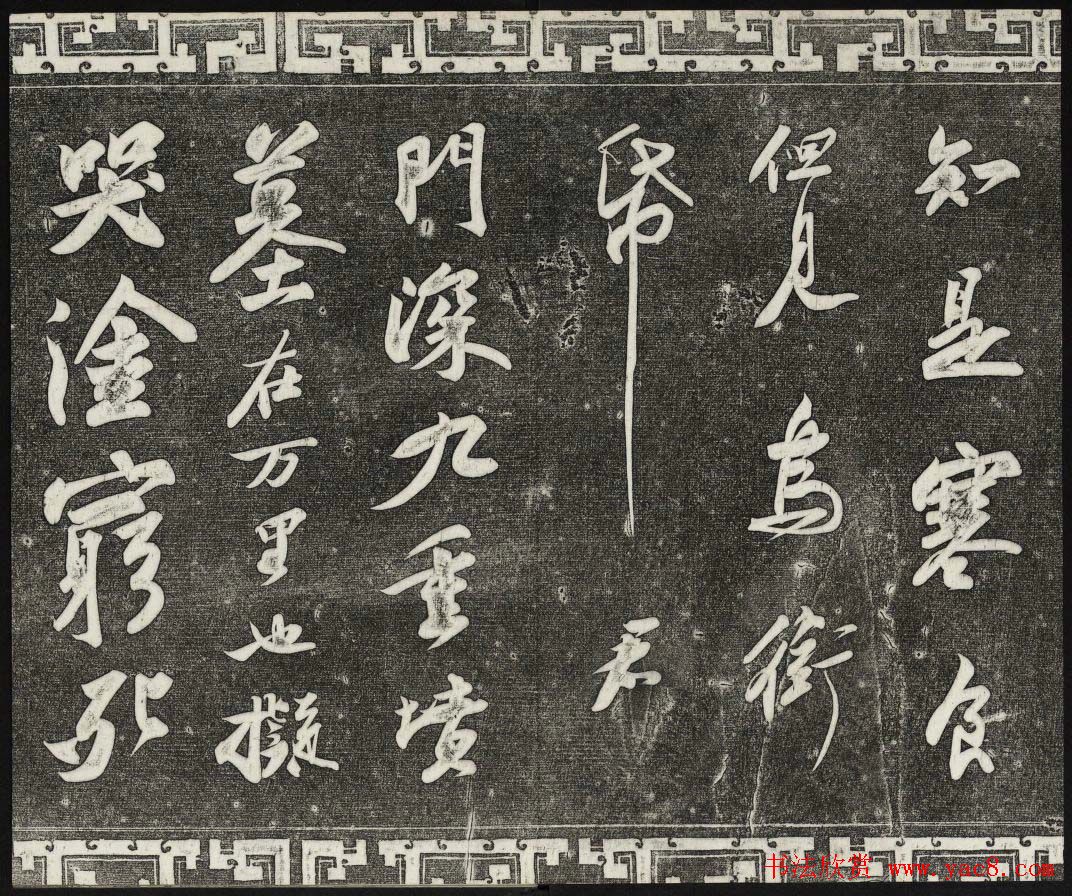 知是寒食
但見烏銜
帋君
門深九重墳
墓在万里也擬
哭塗窮死
书法欣赏 www.yac8.com